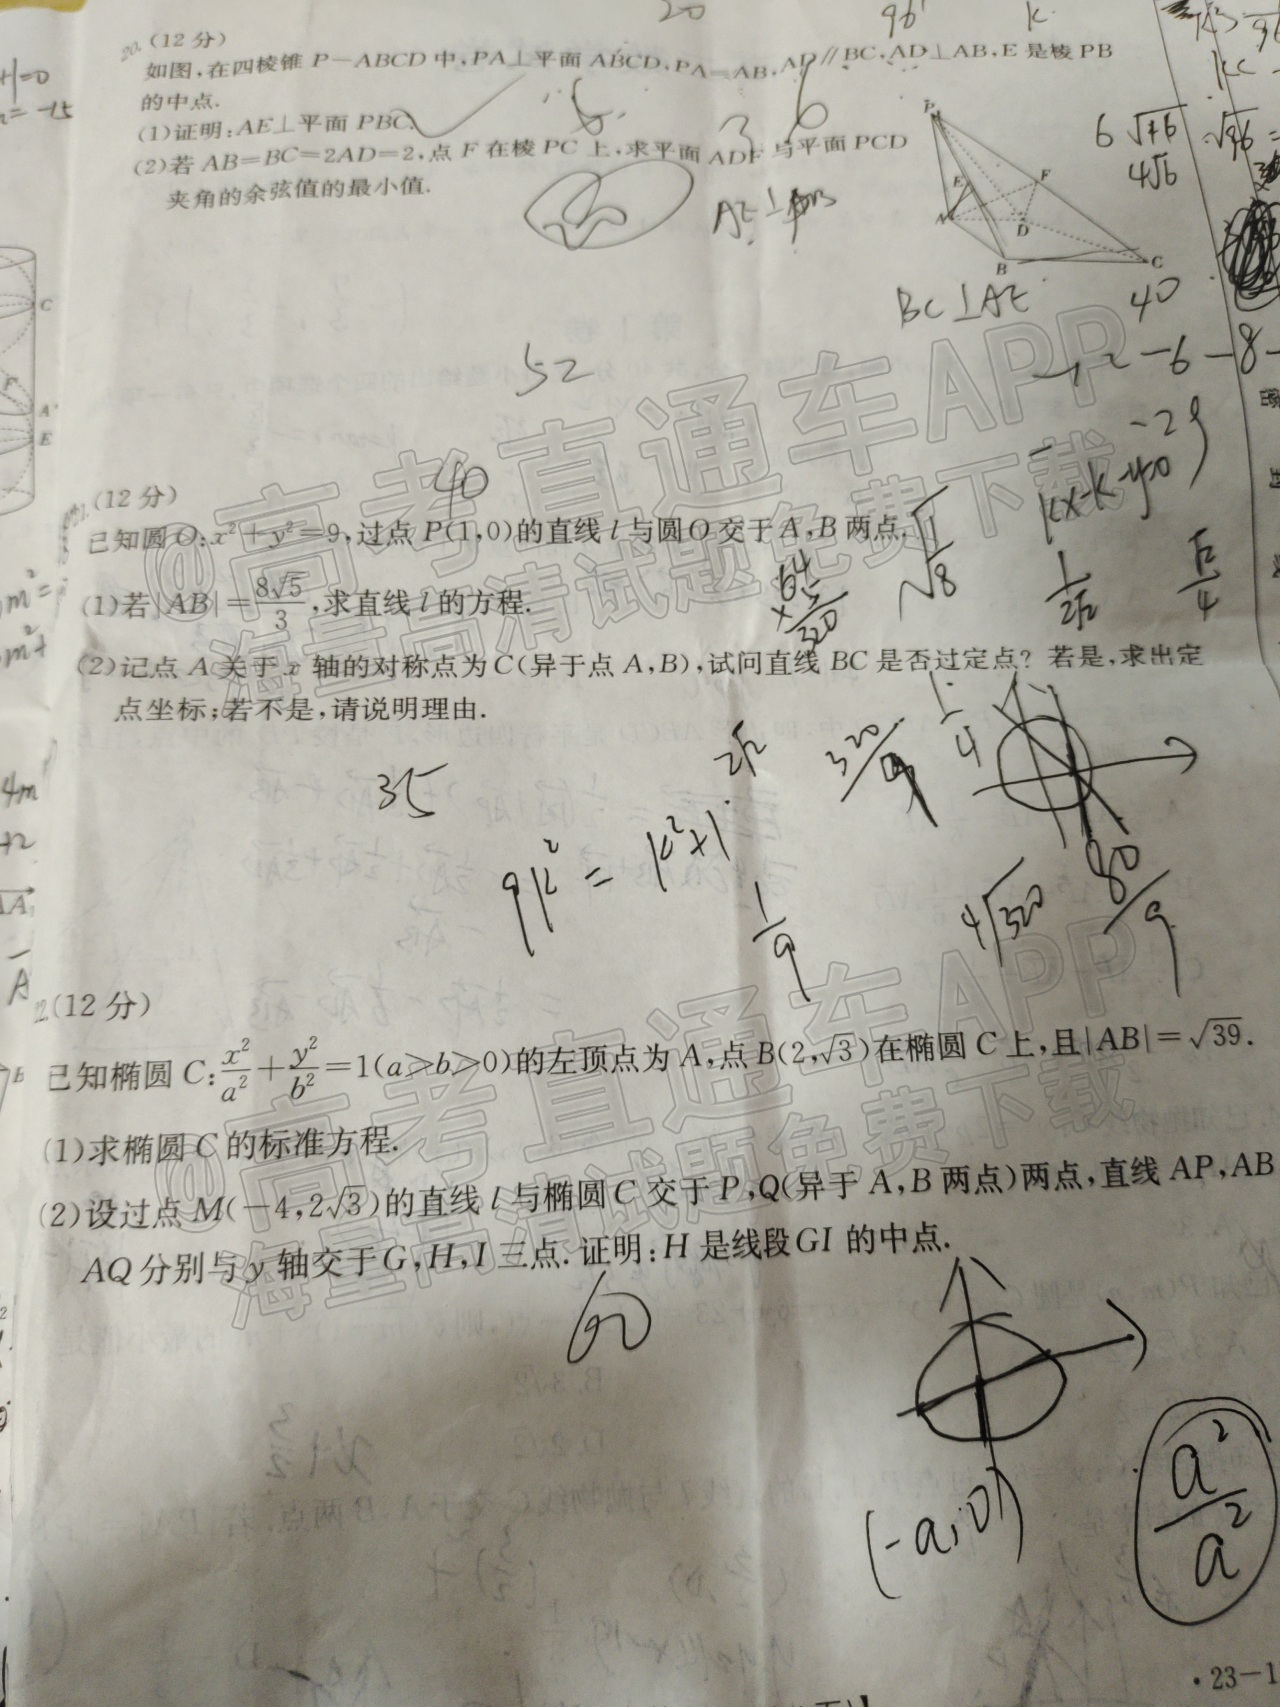 20.(12分)
如图,在四棱锥 P-ABCD 中,PA⊥平面 ABCD,PA=AB,AD∥BC,AD⊥AB,E 是棱 PB
的中点.
(1)证明:AE⊥平面 PBC.
(2)若 AB=BC=2AD=2,点 F 在棱 PC 上,求平面 ADF 与平面 PCD
夹角的余弦值的最小值.
P
E
F
A
D
B
C
BC⊥AE
40
52
40
21.(12分)
已知圆O:x²+y²=9,过点 P(1,0)的直线 l 与圆O交于 A,B 两点.
(1)若|AB|=8√5/3,求直线 l 的方程.
(2)记点 A 关于 x 轴的对称点为 C(异于点 A,B),试问直线 BC 是否过定点?若是,求出定
点坐标;若不是,请说明理由.
35
9k²=k²+1
1/9
80/9
22.(12分)
已知椭圆 C:x²/a²+y²/b²=1(a>b>0)的左顶点为 A,点 B(2,√3)在椭圆 C 上,且|AB|=√39.
(1)求椭圆 C 的标准方程.
(2)设过点 M(-4,2√3)的直线 l 与椭圆 C 交于 P,Q(异于 A,B 两点)两点,直线 AP,AB
AQ 分别与 y 轴交于 G,H,I 三点.证明:H 是线段 GI 的中点.
(-a,0)
a²/a²
·23-1
@高考直通车APP
海量高清试题免费下载
@高考直通车APP
海量高清试题免费下载